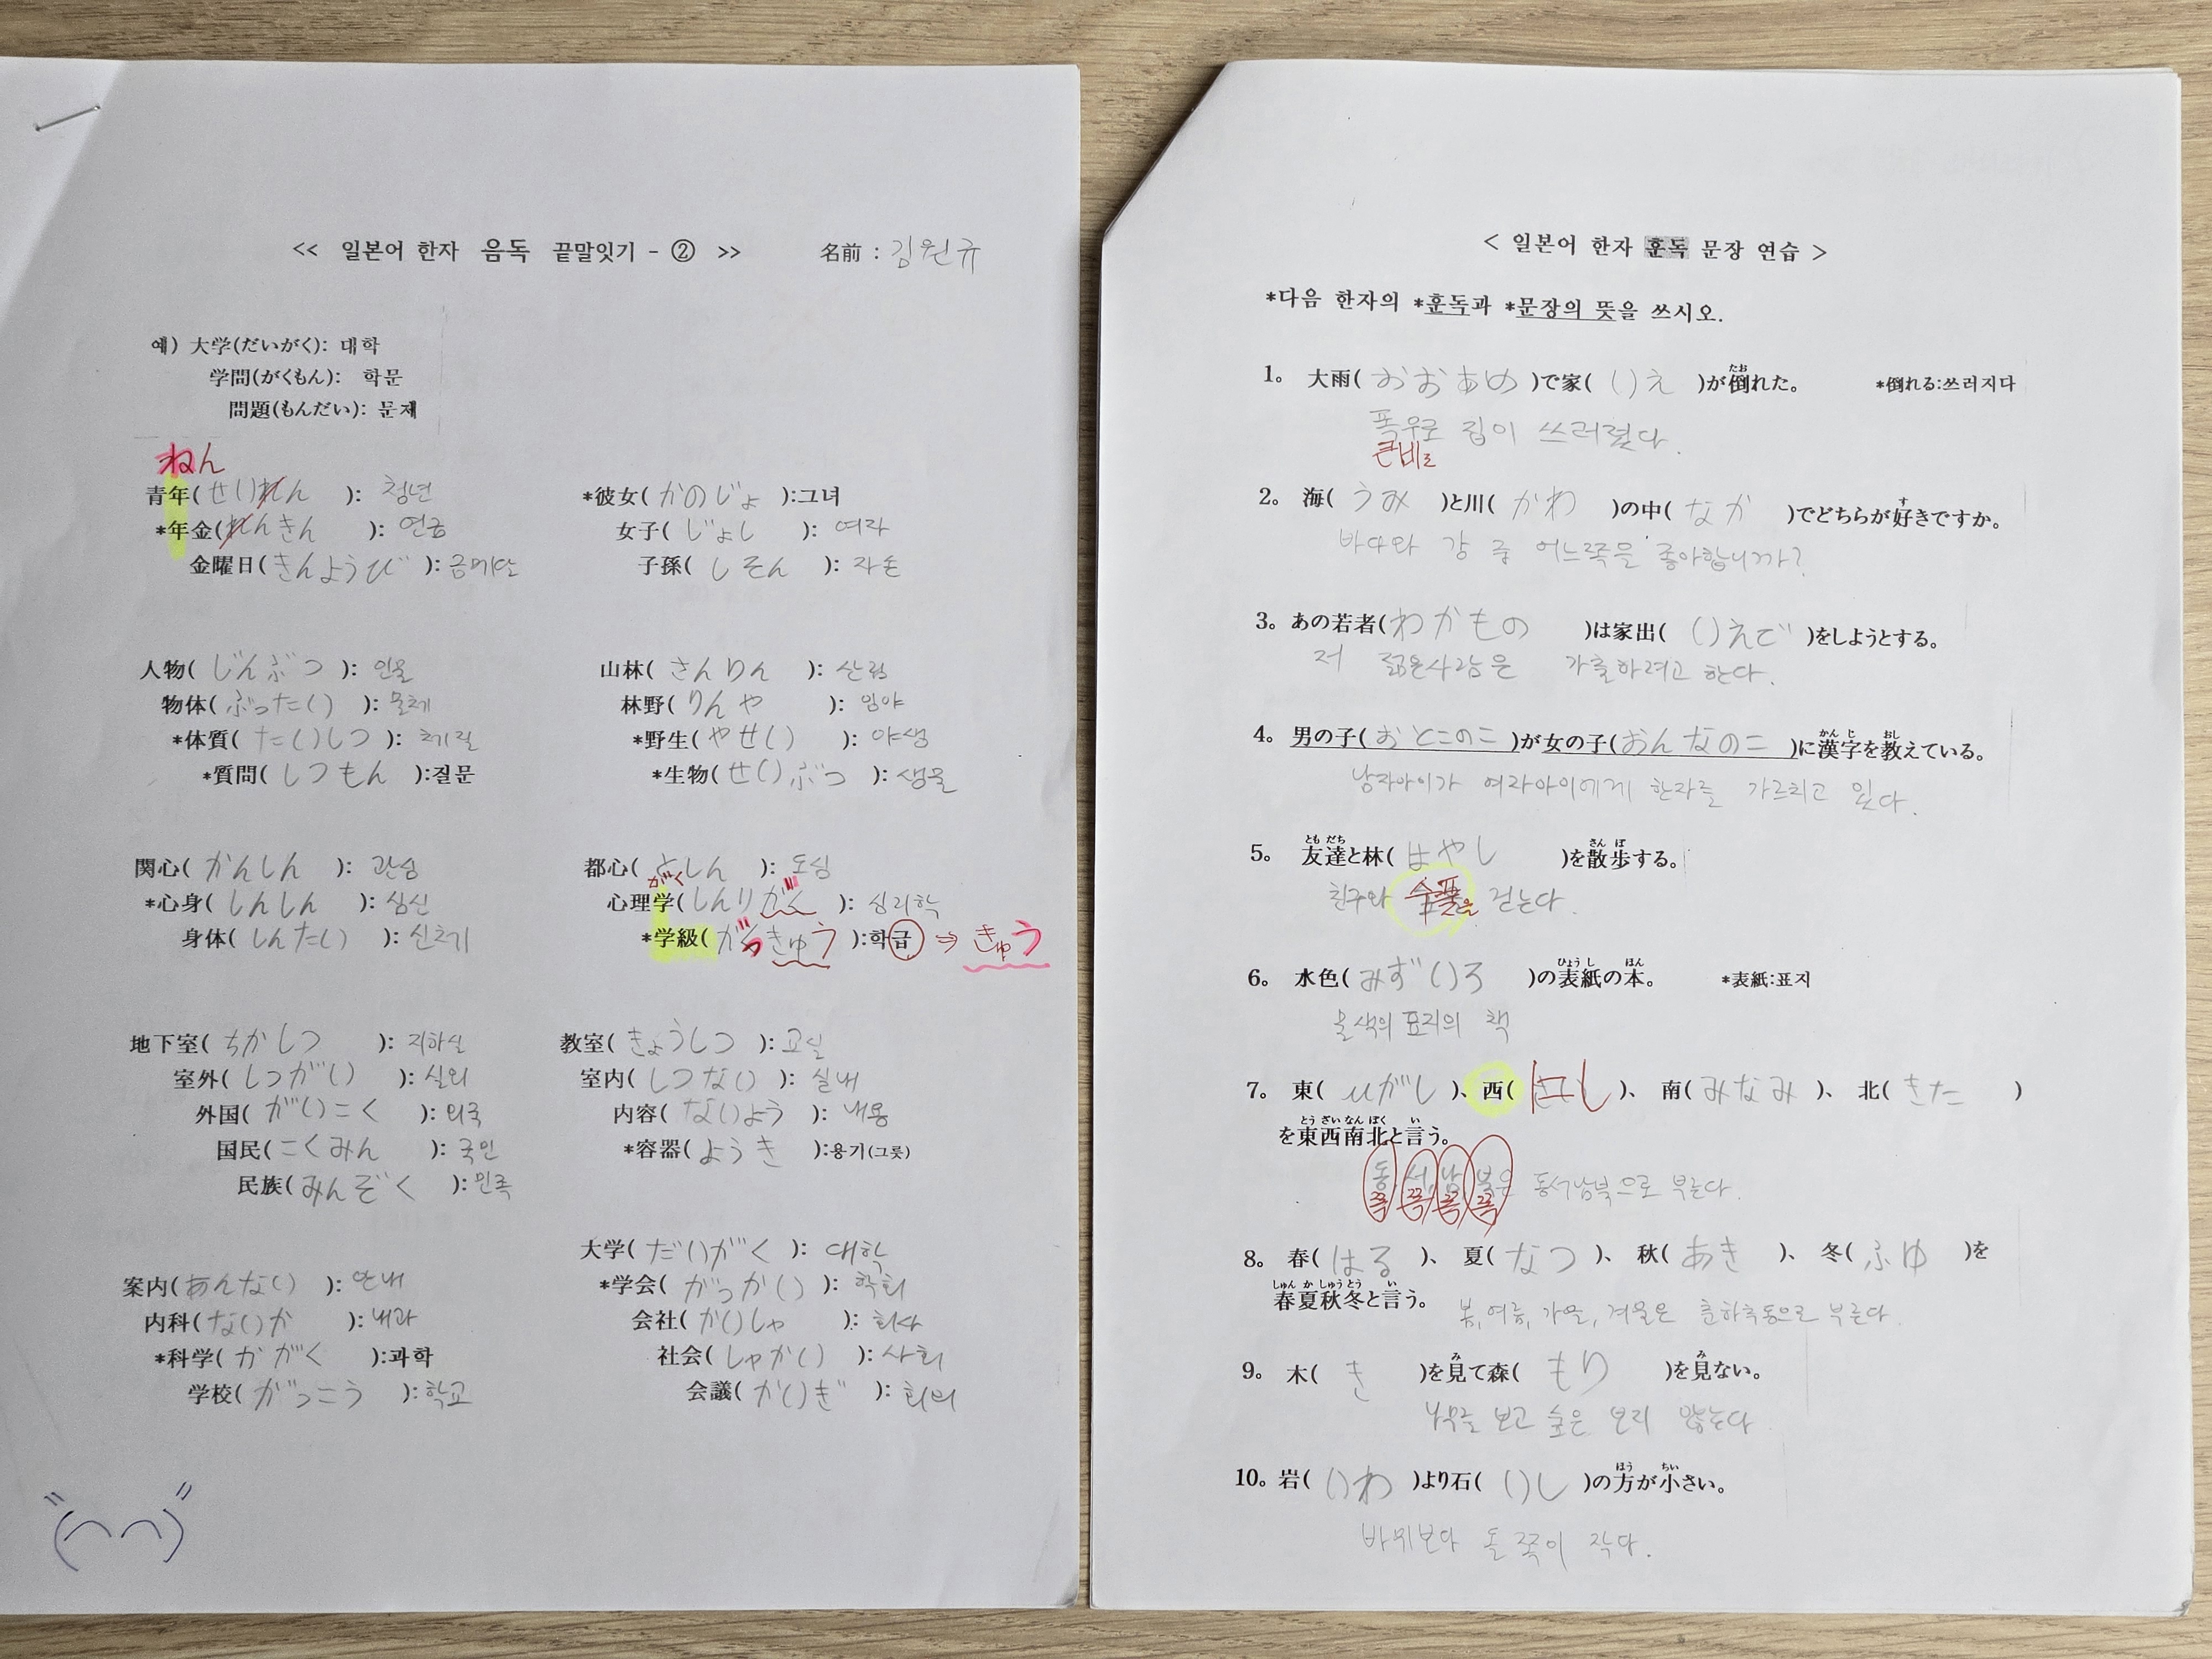 << 일본어 한자 음독 끝말잇기 - ② >> 名前 : 김원규
예) 大学(だいがく): 대학
学問(がくもん): 학문
問題(もんだい): 문제
ねん
青年(せいれん): 청년
*年金(れんきん): 연금
金曜日(きんようび): 금요일
*彼女(かのじょ):그녀
女子(じょし): 여자
子孫(しそん): 자손
人物(じんぶつ): 인물
物体(ぶったい): 물체
*体質(たいしつ): 체질
*質問(しつもん):질문
山林(さんりん): 산림
林野(りんや): 임야
*野生(やせい): 야생
*生物(せいぶつ): 생물
関心(かんしん): 관심
*心身(しんしん): 심신
身体(しんたい): 신체
都心(としん): 도심
がく
心理学(しんりがく): 심리학
*学級(がっきゅう):학급 ⇒ きゅう
地下室(ちかしつ): 지하실
室外(しつがい): 실외
外国(がいこく): 외국
国民(こくみん): 국민
民族(みんぞく): 민족
教室(きょうしつ): 교실
室内(しつない): 실내
内容(ないよう): 내용
*容器(ようき):용기(그릇)
案内(あんない): 안내
内科(ないか): 내과
*科学(かがく):과학
学校(がっこう): 학교
大学(だいがく): 대학
*学会(がっかい): 학회
会社(かいしゃ): 회사
社会(しゃかい): 사회
会議(かいぎ): 회의
< 일본어 한자 훈독 문장 연습 >
*다음 한자의 *훈독과 *문장의 뜻을 쓰시오.
たお
1。 大雨(おおあめ)で家(いえ)が倒れた。 *倒れる:쓰러지다
폭우로 집이 쓰러졌다.
큰비로
す
2。 海(うみ)と川(かわ)の中(なか)でどちらが好きですか。
바다와 강 중 어느쪽을 좋아합니까?
3。 あの若者(わかもの)は家出(いえで)をしようとする。
저 젊은사람은 가출하려고 한다.
かん じ おし
4。 男の子(おとこのこ)が女の子(おんなのこ)に漢字を教えている。
남자아이가 여자아이에게 한자를 가르치고 있다.
とも だち さん ぽ
5。 友達と林(はやし)を散歩する。
친구와 수풀을 걷는다.
ひょう し ほん
6。 水色(みずいろ)の表紙の本。 *表紙:표지
물색의 표지의 책
7。 東(ひがし)、西(にし)、南(みなみ)、北(きた)
とう ざい なん ぼく い
を東西南北と言う。
동 서 남 북은 동서남북으로 부른다.
쪽 쪽 쪽 쪽
8。 春(はる)、夏(なつ)、秋(あき)、冬(ふゆ)を
しゅん か しゅう とう い
春夏秋冬と言う。
봄, 여름, 가을, 겨울은 춘하추동으로 부른다.
み み
9。 木(き)を見て森(もり)を見ない。
나무를 보고 숲은 보지 않는다
ほう ちい
10。 岩(いわ)より石(いし)の方が小さい。
바위보다 돌 쪽이 작다.